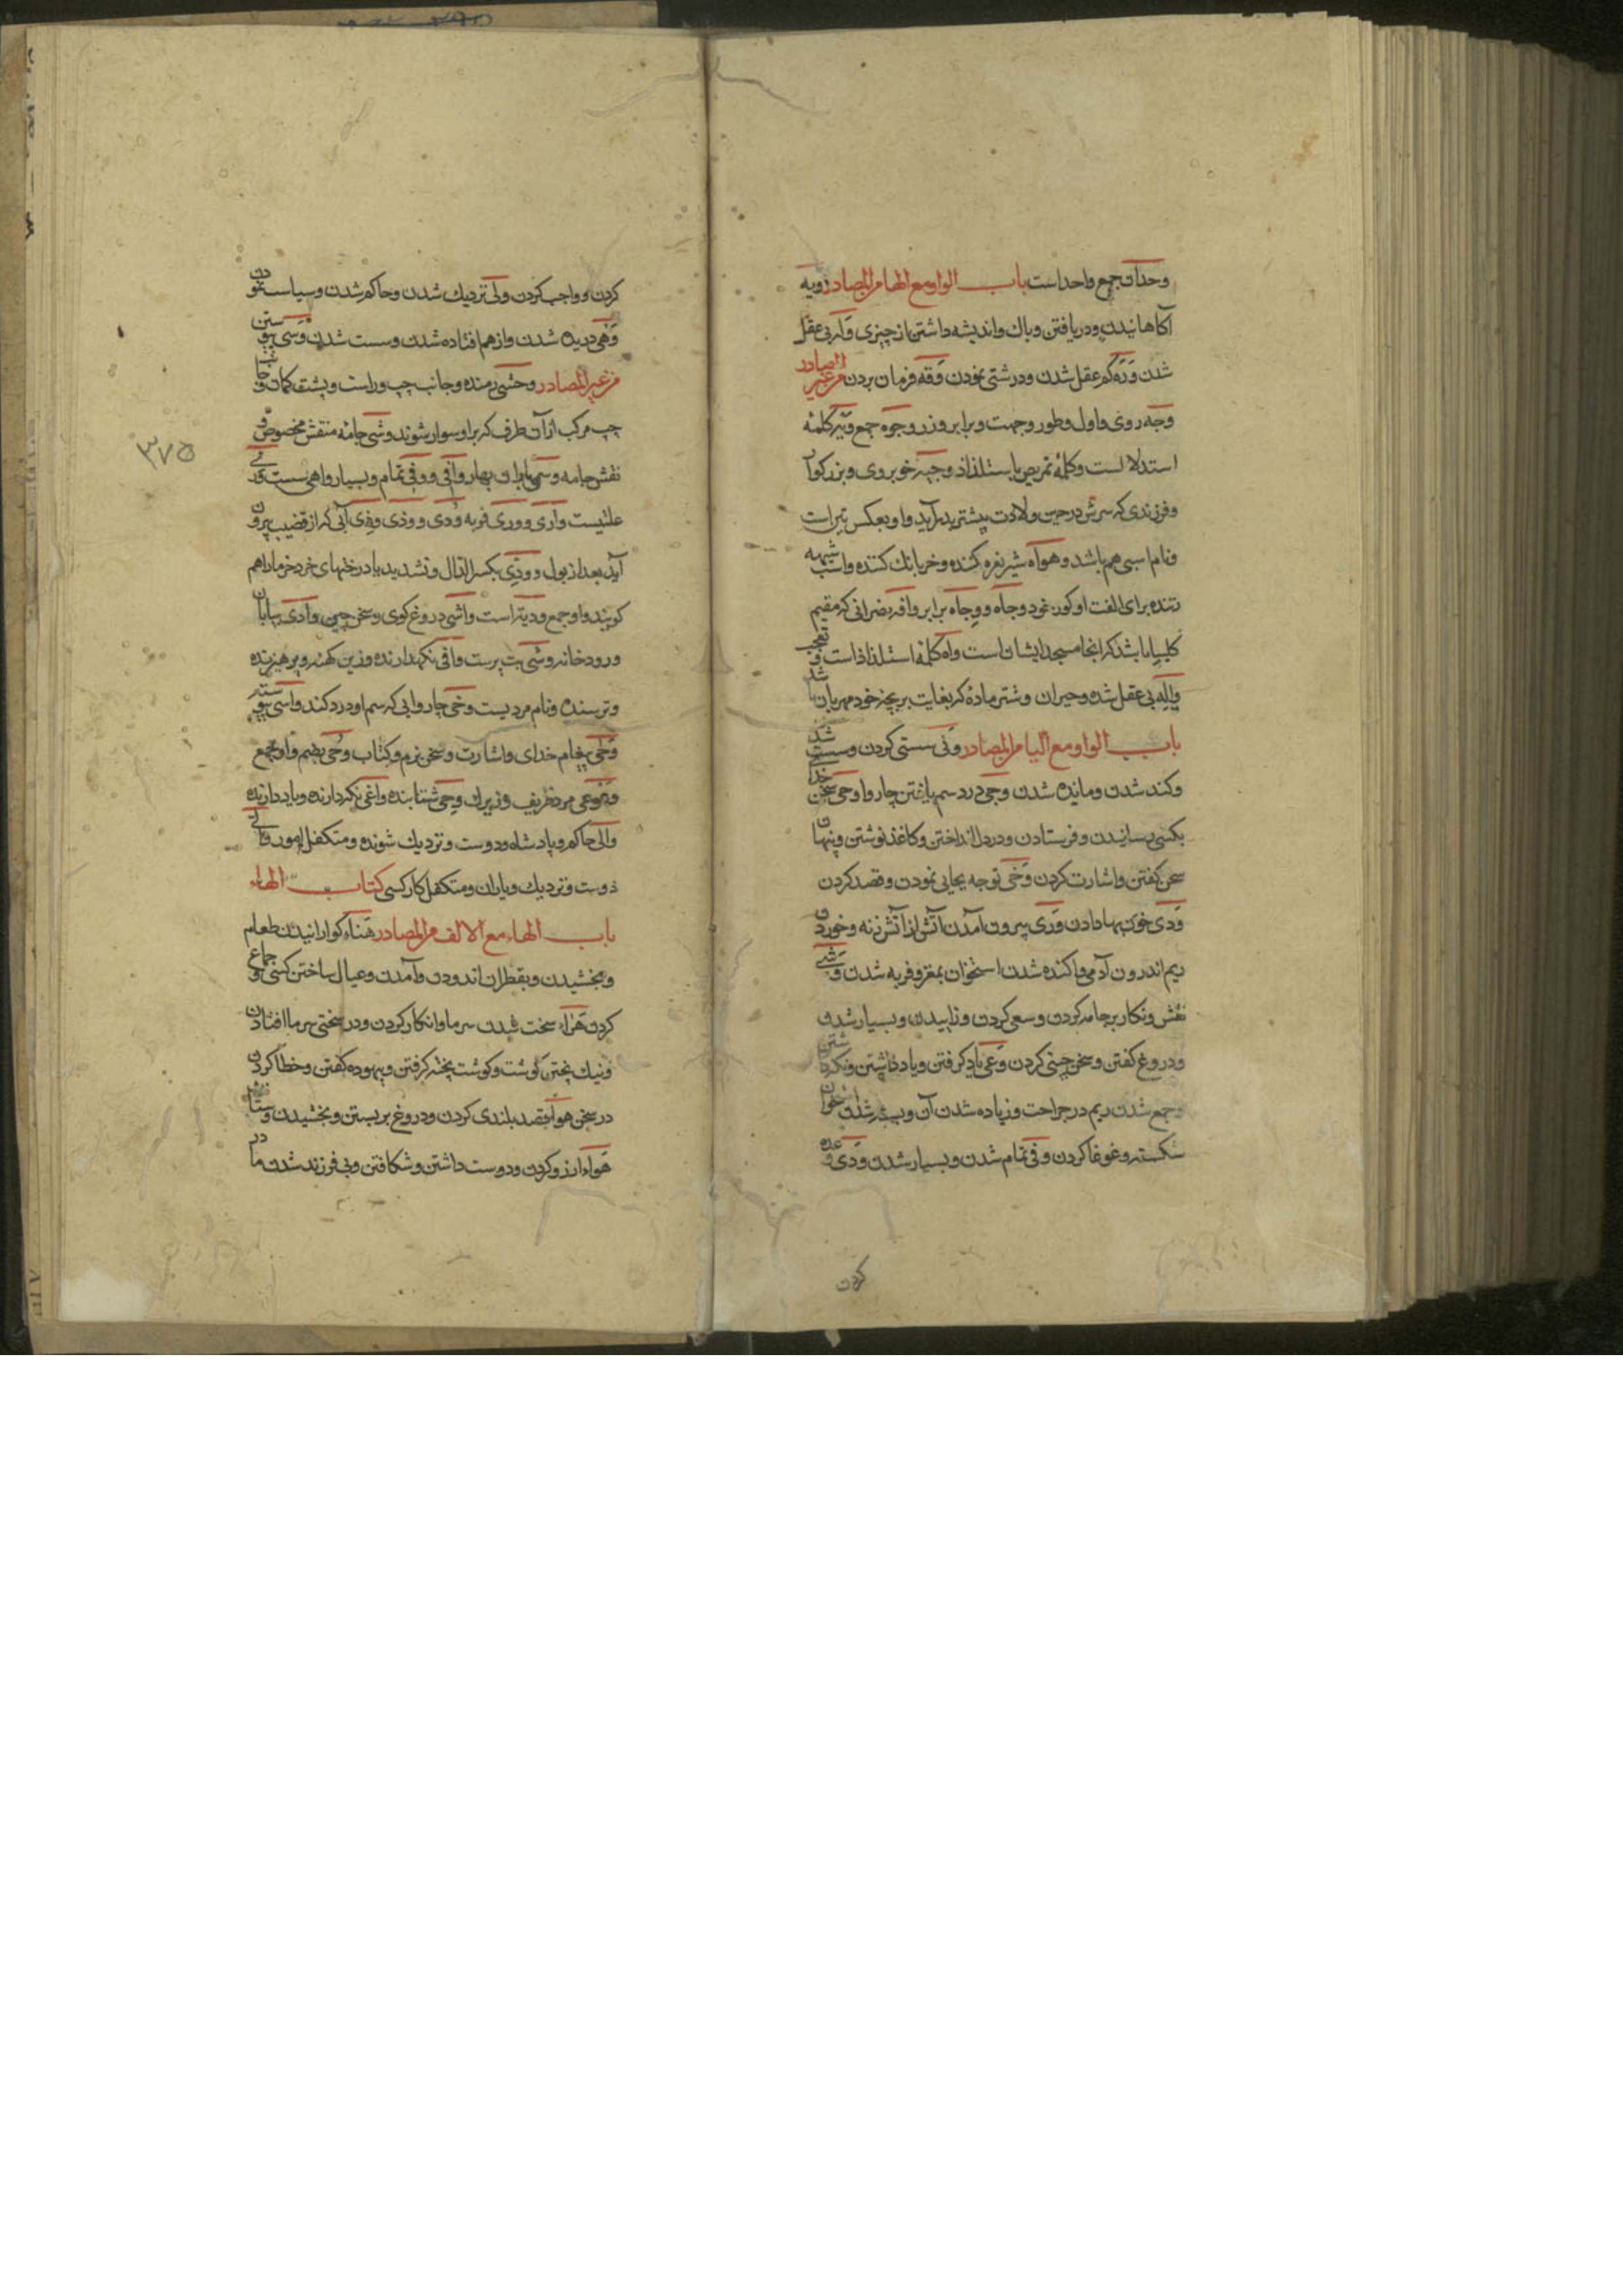 وحدان جمع واحد است باب الواو مع الهاء من المصادر ویه
آکاهانیدن و دریافتن و باک و اندیشه داشتن از چیزی وله بی عقل
شدن وره کم عقل شدن و درشتی نمودن وقه فرمان بردن من غیر المصادر
وجه روی و اول و طور و جهت و برابر و زر وجوه جمع ویه کلمهٔ
استدلا است و کلمهٔ تحریص با ستلذاذ وجیه خوبروی و بزرکوار
و فرزندی که سرش در حین ولادت پیشتر پدید آید و او بعکس تیر است
و نام اسبی هم باشد وهواه شیر نعره کننده و خر بانک کننده و اسب شیهه
زننده برای الفت او کون خود وجاه ووجاه برابر وافه نصرانی که مقیم
کلیسا باشد که انجا مسجد ایشان است واه کلمهٔ استلذاذ است و تعجب
واله بی عقل شده و حیران و شتر مادهٔ که بغایت بر بچه خود مهربان باشد
باب الواو مع الیاء من المصادر ونی سستی کردن و سست شدن
و کند شدن و مانده شدن وجی درد سم یافتن چاروا وحی سخن خدای
بکسی رسانیدن و فرستادن و در دل انداختن و کاغذ نوشتن و پنهان
سخن کفتن و اشارت کردن وخی توجه بجایی نمودن و قصد کردن
ودی خون بها دادن وری بیرون آمدن آتش از آتش زنه و خوردن
ریم اندرون آدمی و آکنده شدن استخوان بمغز و فربه شدن وشی
نقش و نکار بر جامه کردن و سعی کردن و زاییدن و بسیار شدن
و دروغ کفتن و سخن چینی کردن وعی یاد کرفتن و یاد داشتن و نکه داشتن
و جمع شدن ریم در جراحت و زیاده شدن آن و بسته شدن استخوان
شکسته و غوغا کردن وفی تمام شدن و بسیار شدن ودی وعده
کردن
کردن و واجب کردن ولی نزدیک شدن و حاکم شدن و سیاست نمودن
وهی دریده شدن و از هم افتاده شدن و سست شدن وسی
من غیر المصادر وحشی رمنده و جانب چپ و راست و پشت کمان و جانب
چپ مرکب از آن طرف که بر او سوار شوند وشی جامهٔ منقش مخصوص و
نقش جامه وسمی باران بهار وافی ووفی تمام و بسیار واهی سست
علتیست واری ووری فربه ودی ووذی آبی که از قضیب بیرون
آید بعد از بول وودی بکسر الدال و تشدید یا درختهای خرد خرما را هم
کویند و او جمع ودیة است واشی دروغ کوی و سخن چین وادی بیابان
و رودخانه وشی بت پرست واقی نکهدارنده و زین کهنه و پرهیزنده
و ترسنده و نام مردیست وخی چاروایی که سم او درد کند واسی
وحی پیغام خدای و اشارت و سخن نرم و کتاب وحی بضم واو جمع
مرد ظریف و زیرک وحی شتابنده واعی نکه دارنده و یاد دارنده
والی حاکم و پادشاه و دوست و نزدیک شونده و متکفل امور ولی
دوست و نزدیک و یاران و متکفل کار کسی کتاب الهاء
باب الهاء مع الالف من المصادر هناء کوارانیدن طعام
و بخشیدن و بقطران اندودن و آمدن و عیال ساختن کسی و جماع
کردن هراء سخت شدن سرما و انکار کردن و در سختی سرما افتادن
و نیک پختن کوشت و کوشت پخته کرفتن و بیهوده کفتن و خطا کردن
در سخن هواء قصد بلندی کردن و دروغ بر بستن و بخشیدن
هواء ارزو کردن و دوست داشتن و شکافتن و بی فرزند شدن مادر
٣٧٥